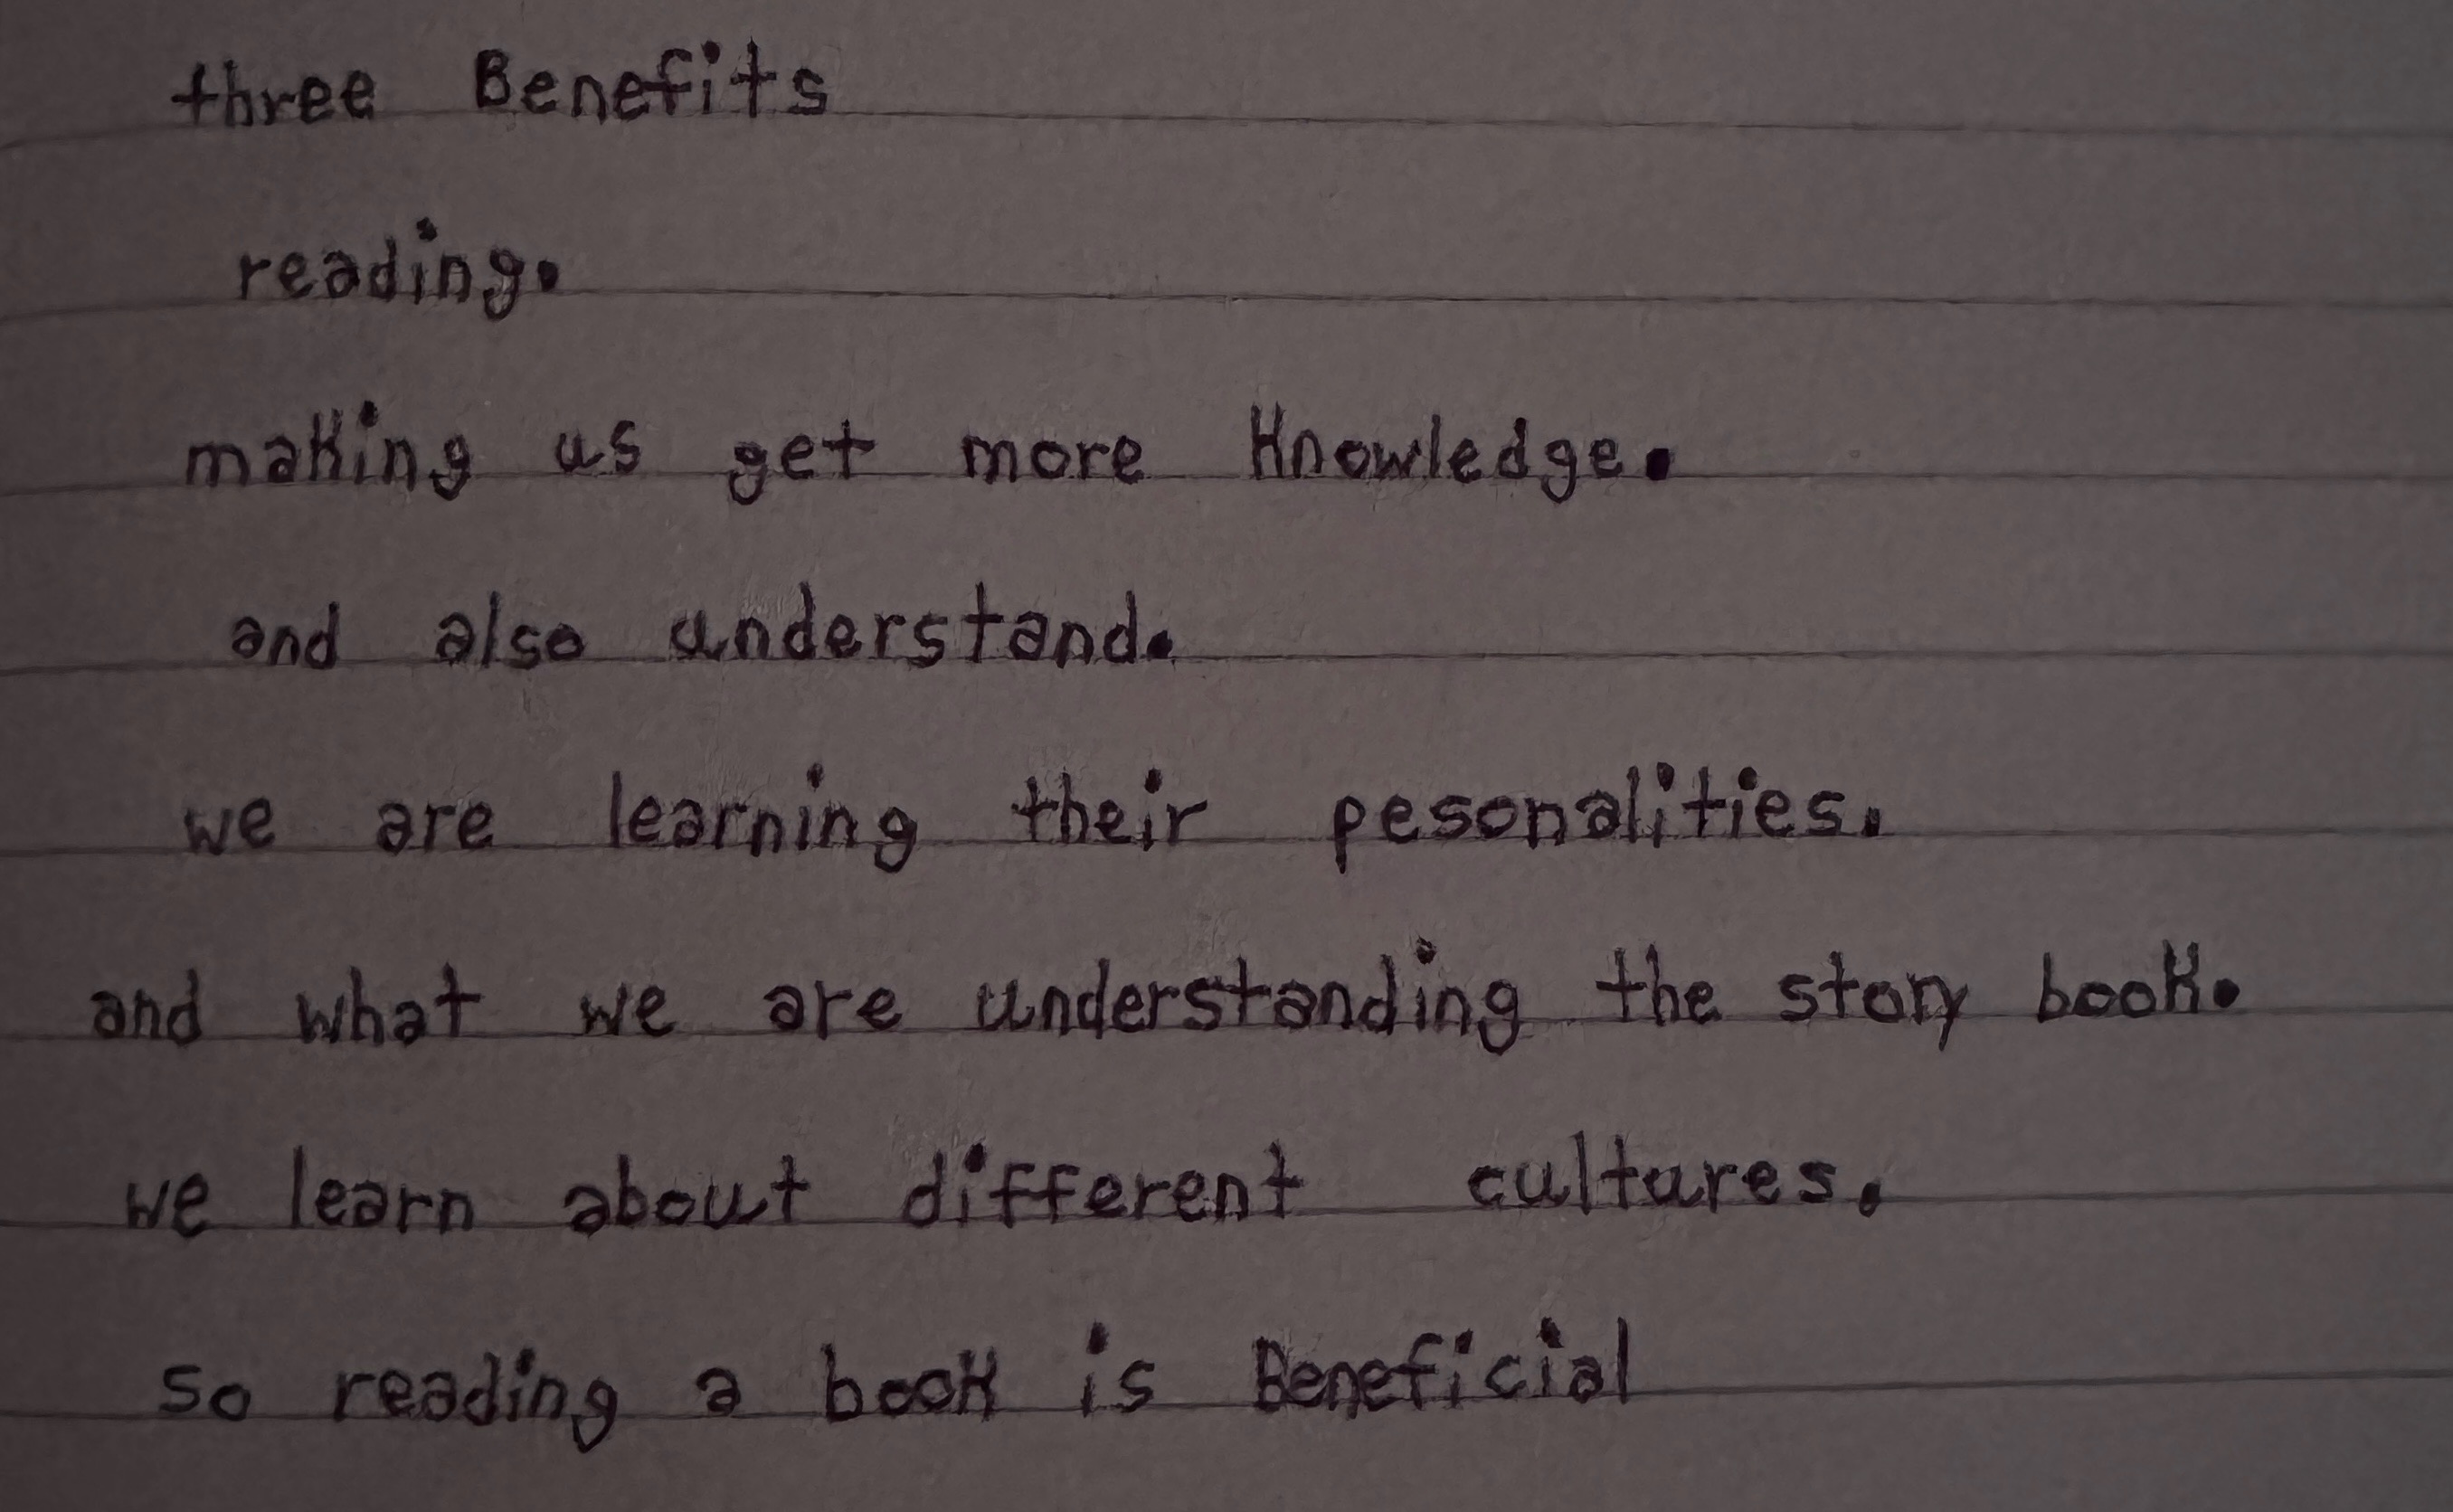 three Benefits
reading.
making us get more Knowledge.
and also understand.
we are learning their pesonalities.
and what we are understanding the story book.
we learn about different cultures.
so reading a book is Beneficial